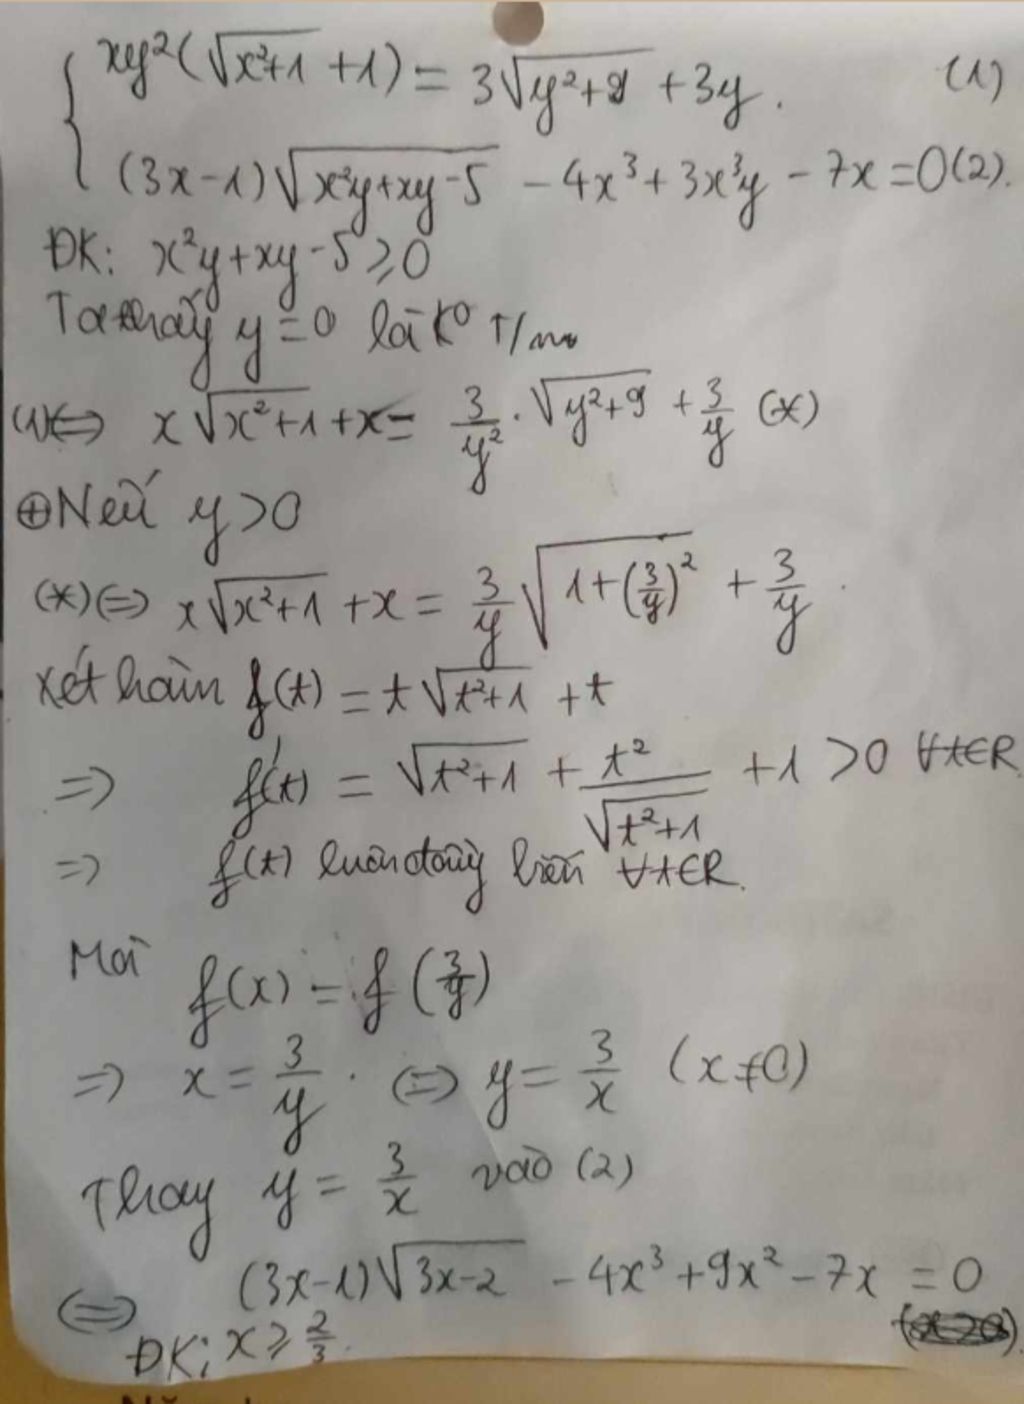 { xy²(√(x²+1) + 1) = 3√(y²+9) + 3y. (1)
(3x-1)√(x²y+xy-5) - 4x³ + 3x³y - 7x = 0 (2).
ĐK: x²y + xy - 5 ≥ 0
Ta thấy y = 0 là k⁰ T/m
(1) <=> x√(x²+1) + x = 3/y² . √(y²+9) + 3/y (*)
⊕ Nếu y > 0
(*) <=> x√(x²+1) + x = 3/y √(1+(3/y)²) + 3/y.
Xét hàm f(t) = t√(t²+1) + t
=> f'(t) = √(t²+1) + t²/√(t²+1) + 1 > 0 ∀t∈R
=> f(t) luôn đồng biến ∀t∈R.
Mà f(x) = f(3/y)
=> x = 3/y. <=> y = 3/x (x≠0)
Thay y = 3/x vào (2)
<=> (3x-1)√(3x-2) - 4x³ + 9x² - 7x = 0
ĐK: x ≥ 2/3.